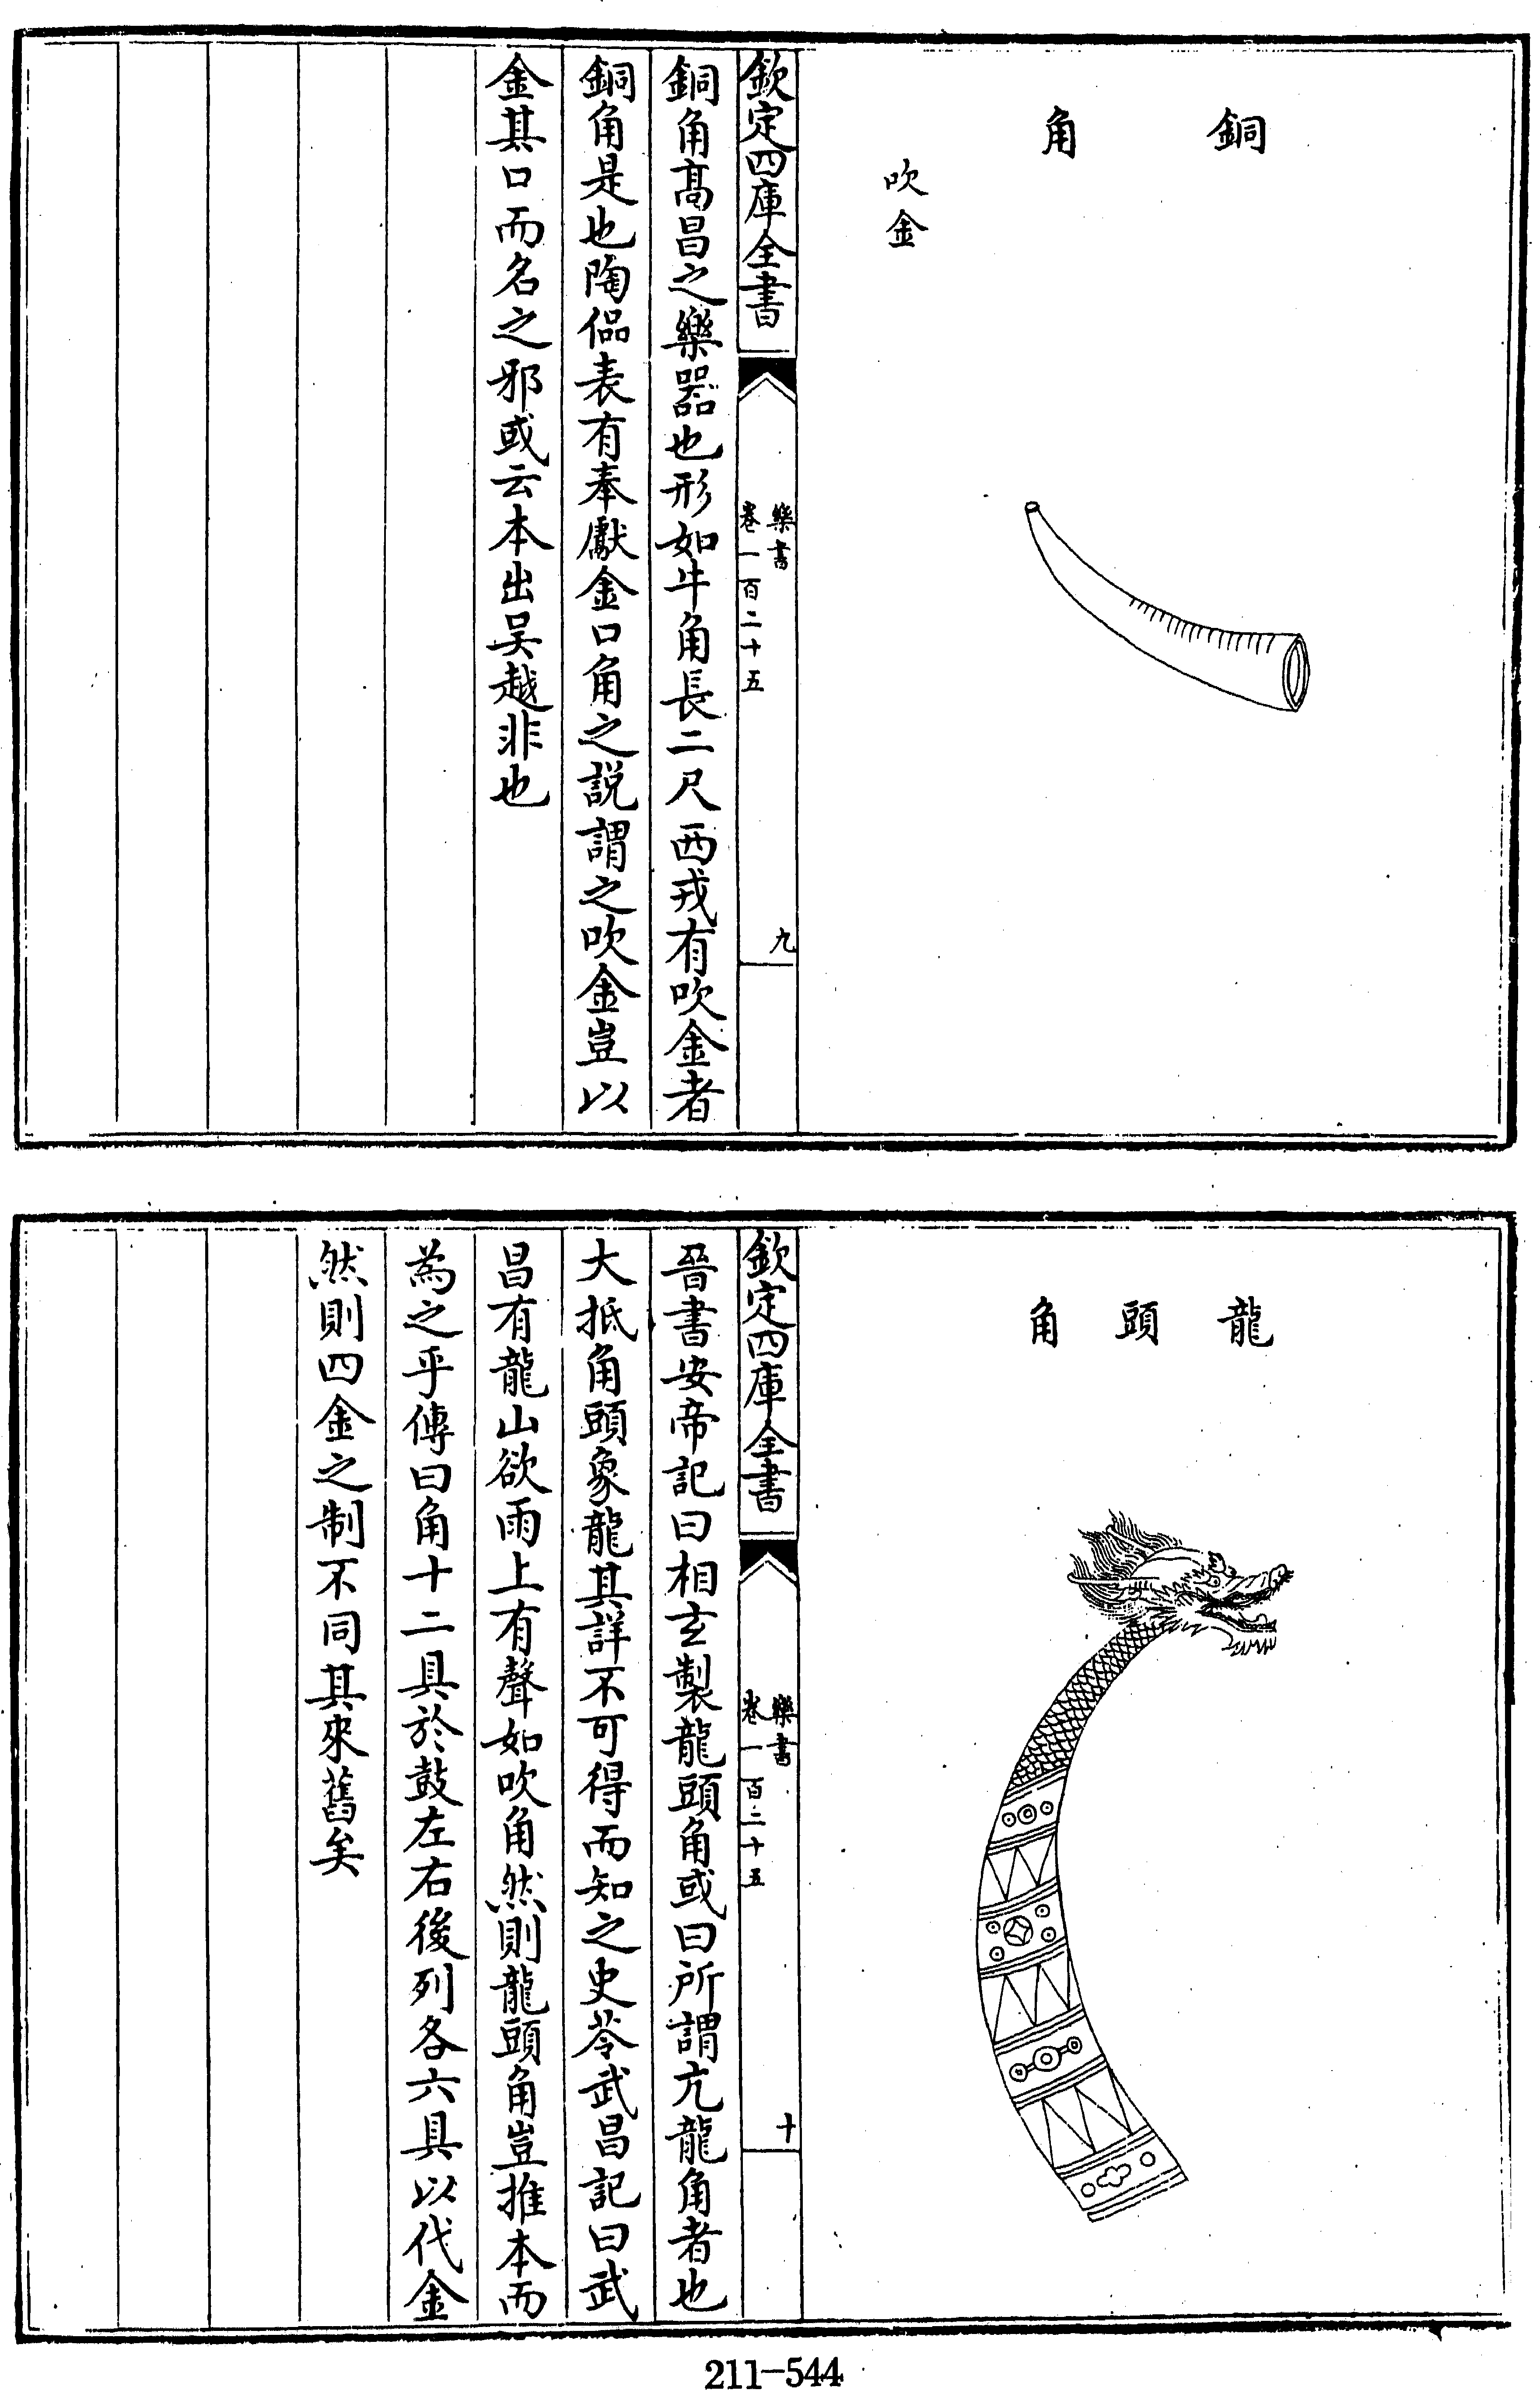 銅角
吹金
欽定四庫全書
樂書
卷一百二十五
九
銅角髙昌之樂器也形如牛角長二尺西戎有吹金者
銅角是也陶侃表有奉獻金口角之説謂之吹金豈以
金其口而名之邪或云本出吴越非也
龍頭角
欽定四庫全書
樂書
卷一百二十五
十
晉書安帝記曰相玄製龍頭角或曰所謂亢龍角者也
大抵角頭象龍其詳不可得而知之史苓武昌記曰武
昌有龍山欲雨上有聲如吹角然則龍頭角豈推本而
為之乎傳曰角十二具於鼓左右後列各六具以代金
然則四金之制不同其來舊矣
211-544